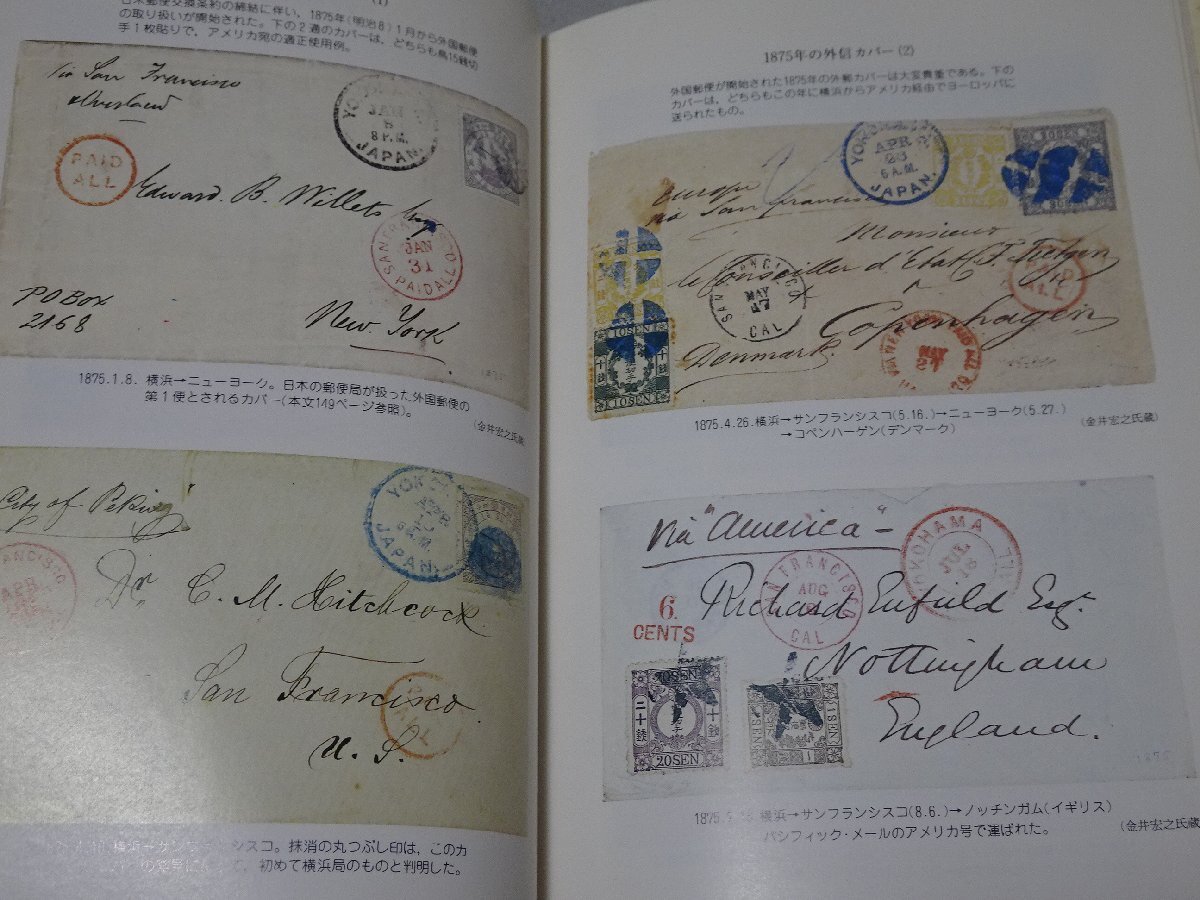 (1)
日米郵便交換条約の締結に伴い、1875年(明治8)1月から外国郵便
の取り扱いが開始された。下の2通のカバーは、どちらも鳥15銭切
手1枚貼りで、アメリカ宛の適正使用例。
Via San Francisco
Overland
YOKOHAMA
JAN
8
8 P.M.
JAPAN.
PAID
ALL
Edward B. Willets Esq
SAN FRANCISCO
JAN
31
PAID ALL
P O Box
2168
New York
1875.1.8. 横浜→ニューヨーク。日本の郵便局が扱った外国郵便の
第1便とされるカバー(本文149ページ参照)。
(金井宏之氏蔵)
City of Peking
YOK
JAPAN.
APR
Dr. C. M. Hitchcock
San Francisco
U. S.
ALL
横浜→サンフランシスコ。抹消の丸つぶし印は、このカ
初めて横浜局のものと判明した。
1875年の外信カバー(2)
外国郵便が開始された1875年の外郵カバーは大変貴重である。下の
カバーは、どちらもこの年に横浜からアメリカ経由でヨーロッパに
送られたもの。
europe
via San francisco
APR
6 A.M.
JAPAN.
Monsieur
le Conseiller d'Etat
SAN FRANCISCO
MAY
17
CAL
PAID
ALL
Copenhagen
Denmark.
10 SEN
10 SEN
1875.4.26. 横浜→サンフランシスコ(5.16.)→ニューヨーク(5.27.)
→コペンハーゲン(デンマーク)
(金井宏之氏蔵)
via "America"
YOKOHAMA
JUL
18
SAN FRANCISCO
AUG
CAL
6
CENTS
Richard Enfield Esqr.
Nottingham
England.
20SEN
二十銭
20SEN
1SEN
1875
横浜→サンフランシスコ(8.6.)→ノッチンガム(イギリス)
パシフィック・メールのアメリカ号で運ばれた。
(金井宏之氏蔵)